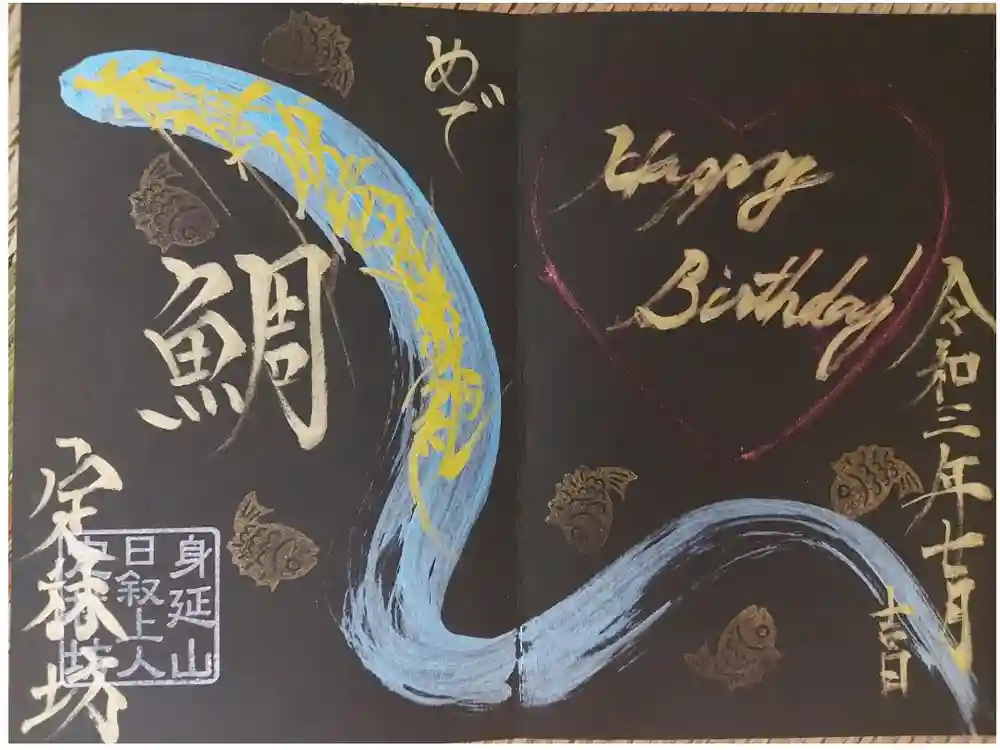 令和三年七月
吉日
Happy
Birthday
めで
鯛
定林坊
身延山
日叙上人